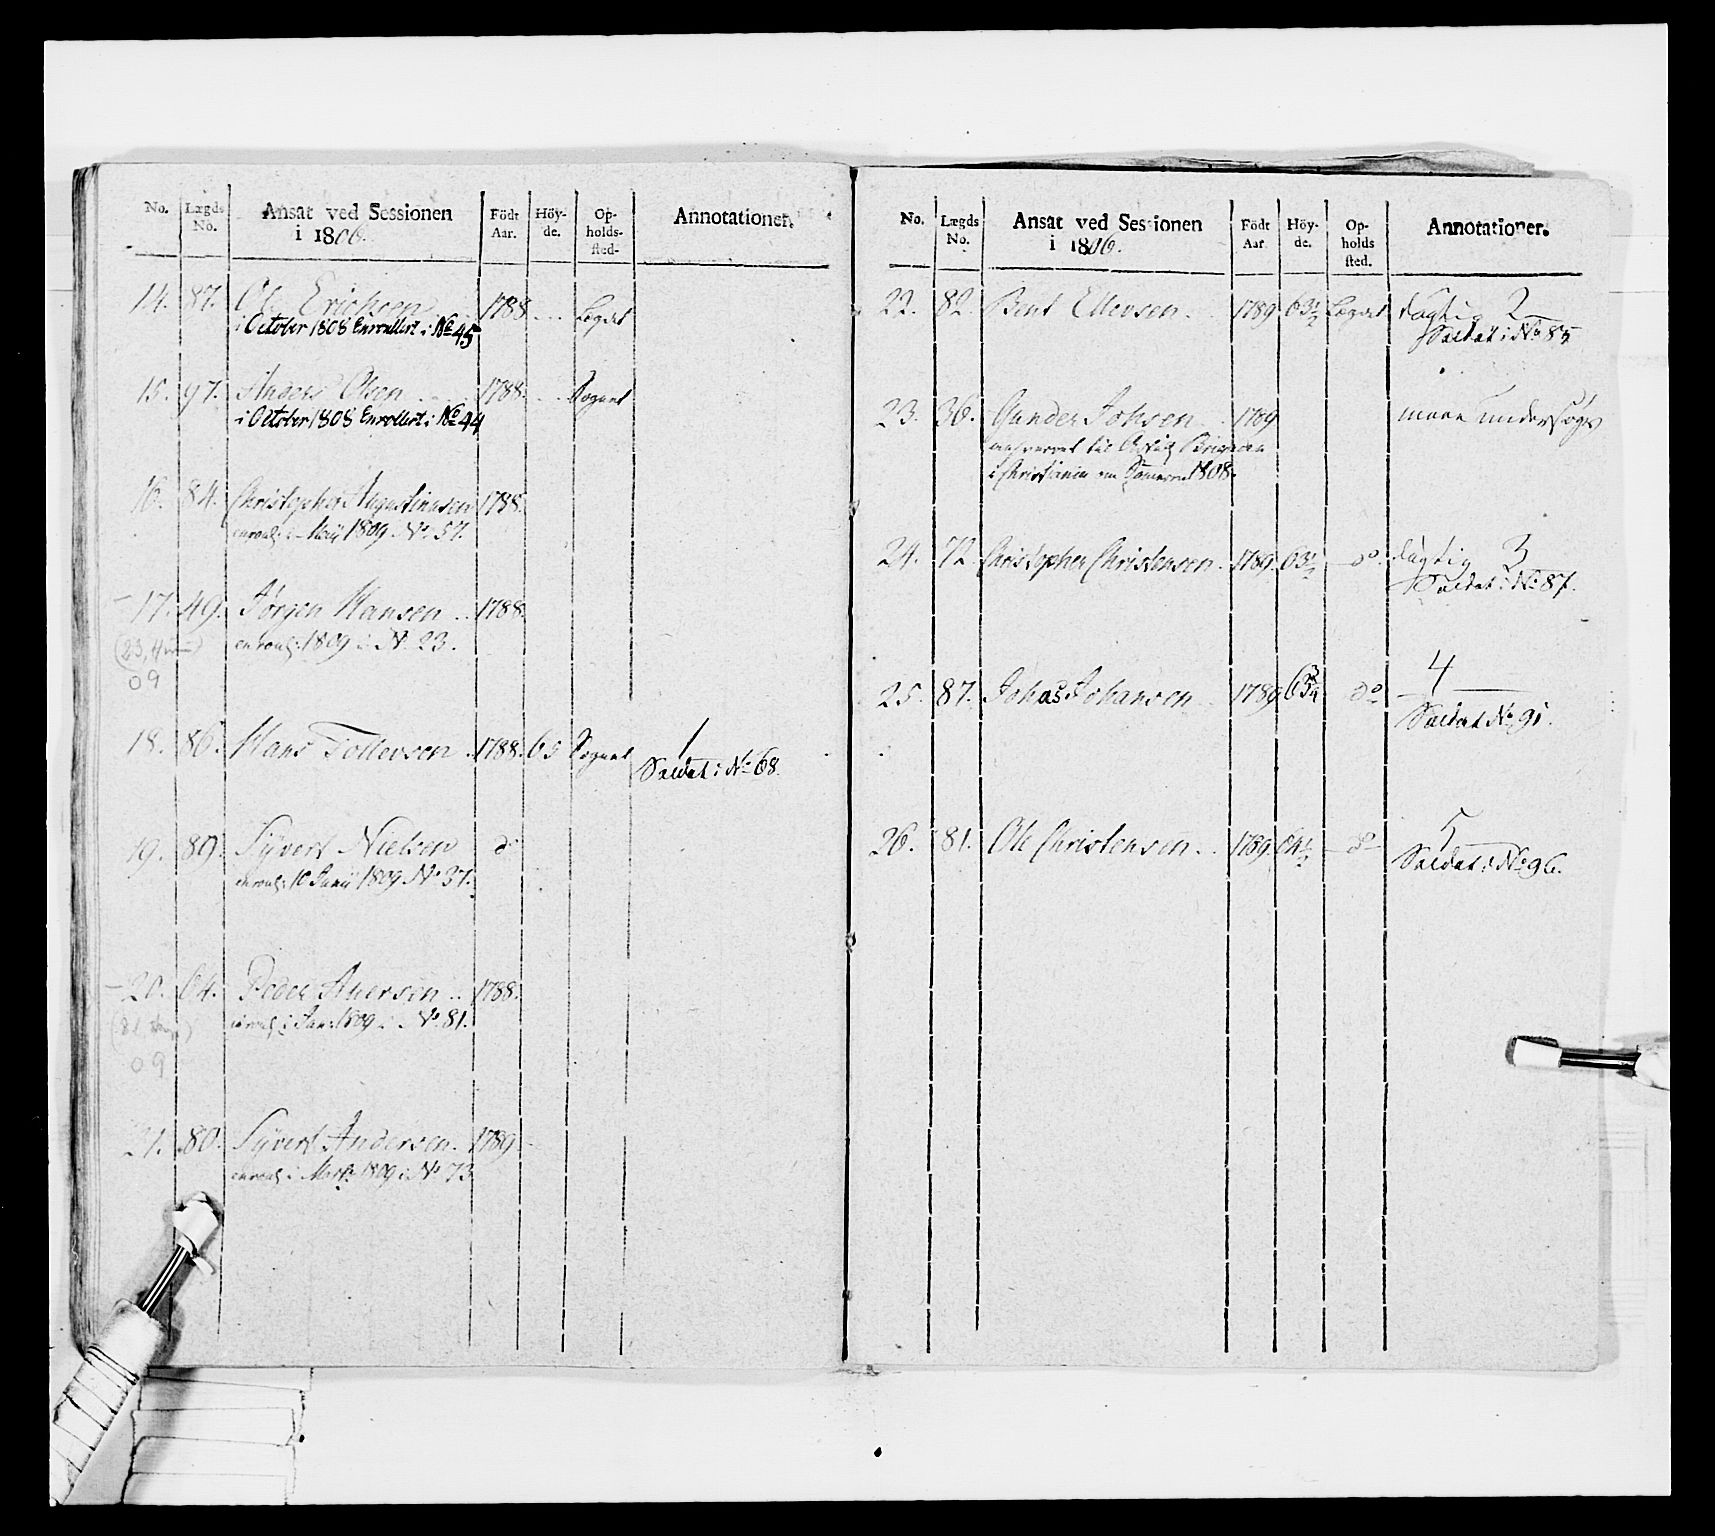 No. Lægds No. Ansat ved Sessionen i 1806. Födt Aar. Höyde. Opholdssted. Annotationer.
14. 87. Ole Erichsen 1788. Lægdet
i October 1808 Enrollert i No 45
15. 97. Anders Olsen 1788. Sognet
i October 1808 Enrollert i No 44
16. 84. Christopher Augustinusen 1788.
enroul: i Maij 1809 No 57.
17. 49. Jørgen Hansen 1788.
enroul: 1809 i No 23.
09
18. 86. Hans Tollevsen 1788. 65 Sognet 1
Soldat i No 68.
19. 89. Syvert Nielsen do
enroul: 10 Junii 1809 No 37.
20. 64. Peder Aversen 1788.
enroul: i Jan: 1809 i No 81.
09
21. 80. Syvert Andersen. 1789
enroul: i Marti 1809 i No 73
No. Lægds No. Ansat ved Sessionen i 1806. Födt Aar. Höyde. Opholdssted. Annotationer.
22. 82. Bent Ellevsen. 1789 63½ Lægdet dygtig 2
Soldat i No 85
23. 36. Gunder Johsen 1789
til
i Christiania om Sommeren 1808.
24. 72. Christopher Christensen. 1789. 63½ do. dygtig 3
Soldat i No 87.
25. 87. Johas Johansen 1789 63¾ do 4
Soldat No 91.
26. 81. Ole Christensen. 1789. 64½ do 5
Soldat i No 96.